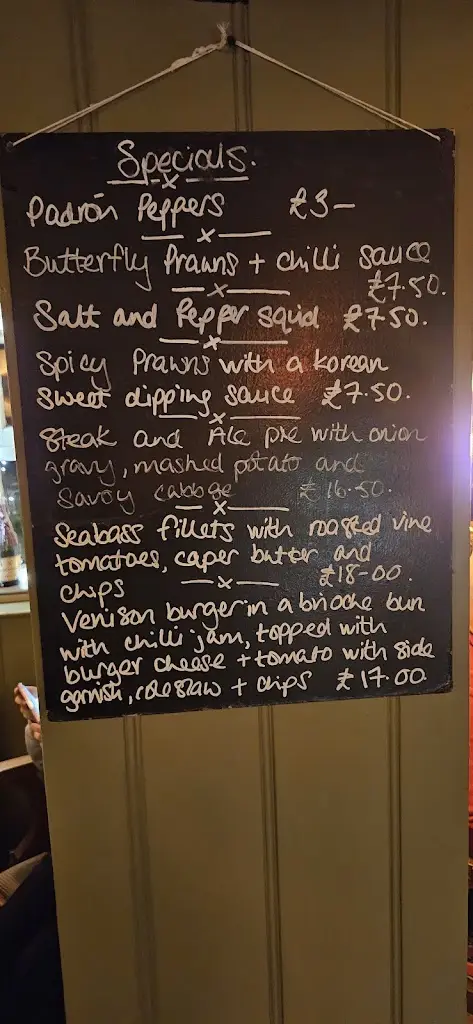 Specials.
Padrón Peppers £3-
Butterfly Prawns + chilli sauce
£7.50.
Salt and Pepper squid £7.50.
Spicy Prawns with a korean
sweet dipping sauce £7.50.
Steak and Ale pie with onion
gravy, mashed potato and
Savoy cabbge £16.50.
Seabass fillets with roasted vine
tomatoes, caper butter and
chips £18-00.
Venison burger in a brioche bun
with chilli jam, topped with
burger cheese + tomato with side
garnish, coleslaw + chips £17.00